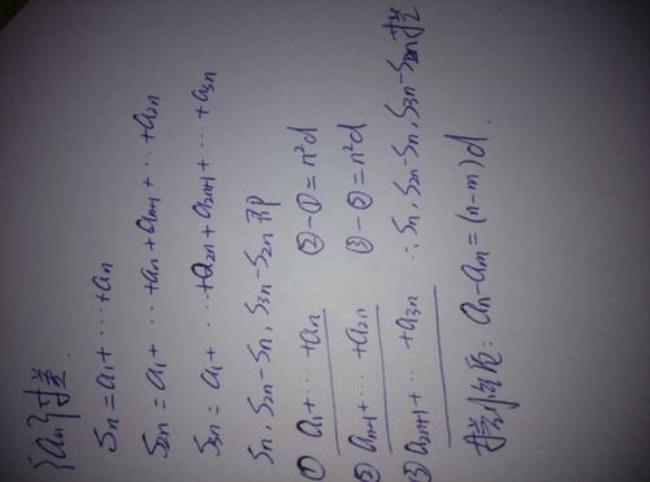 {an}等差.
Sn = a1 + ⋯ + an
S2n = a1 + ⋯ + an + an+1 + ⋯ + a2n
S3n = a1 + ⋯ + a2n + a2n+1 + ⋯ + a3n
Sn, S2n-Sn, S3n-S2n 即
① a1 + ⋯ + an ②-①=n²d
② an+1 + ⋯ + a2n ③-②=n²d.
③ a2n+1 + ⋯ + a3n ∴Sn, S2n-Sn, S3n-S2n等差
等差性质: an-am=(n-m)d.